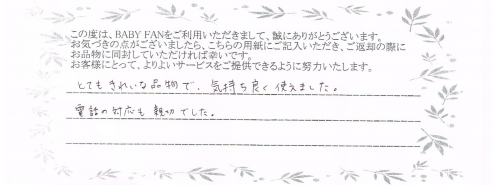 この度は、BABY FANをご利用いただきまして、誠にありがとうございます。
お気づきの点がございましたら、こちらの用紙にご記入いただき、ご返却の際に
お品物に同封していただければ幸いです。
お客様にとって、よりよいサービスをご提供できるように努力いたします。
とてもきれいな品物で、気持ち良く使えました。
電話の対応も親切でした。